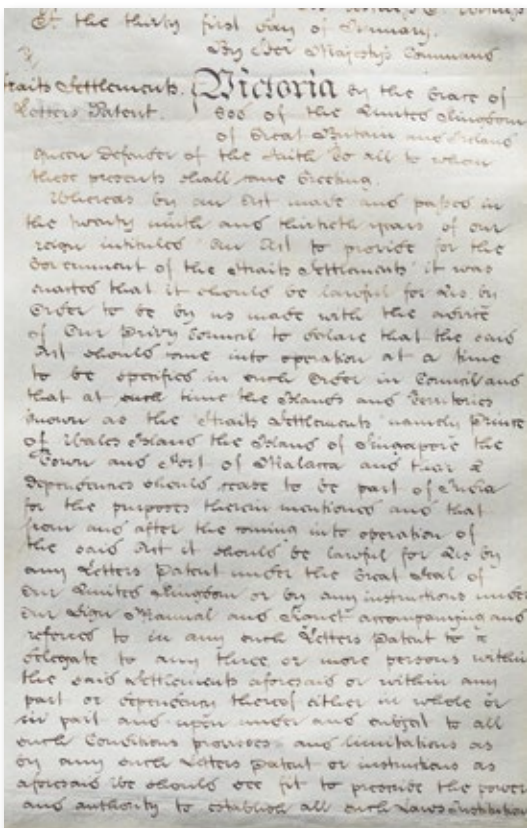 Of the thirty first day of January.
By Her Majesty's Command
Straits Settlements.
Letters Patent.
Victoria by the Grace of
God of the United Kingdom
of Great Britain and Ireland
Queen Defender of the Faith To all to whom
these presents shall come Greeting.
Whereas by an Act made and passed in
the twenty ninth and thirtieth years of our
reign intituled "An Act to provide for the
Government of the Straits Settlements" it was
enacted that it should be lawful for Us by
Order to be by us made with the advice
of Our Privy Council to declare that the said
Act should come into operation at a time
to be specified in such Order in Council and
that at such time the Islands and Territories
known as the Straits Settlements namely Prince
of Wales Island the Island of Singapore the
Town and Fort of Malacca and their
dependencies should cease to be part of India
for the purposes therein mentioned and that
from and after the coming into operation of
the said Act it should be lawful for Us by
any Letters Patent under the Great Seal of
Our United Kingdom or by any instructions under
Our Sign Manual and Signet accompanying and
referred to in any such Letters Patent to
delegate to any three or more persons within
the said Settlements aforesaid or within any
part or dependency thereof either in whole or
in part and upon under and subject to all
such Conditions provisoes and limitations as
by any such Letters Patent or instructions as
aforesaid We should see fit to prescribe the power
and authority to establish all such Laws Institution